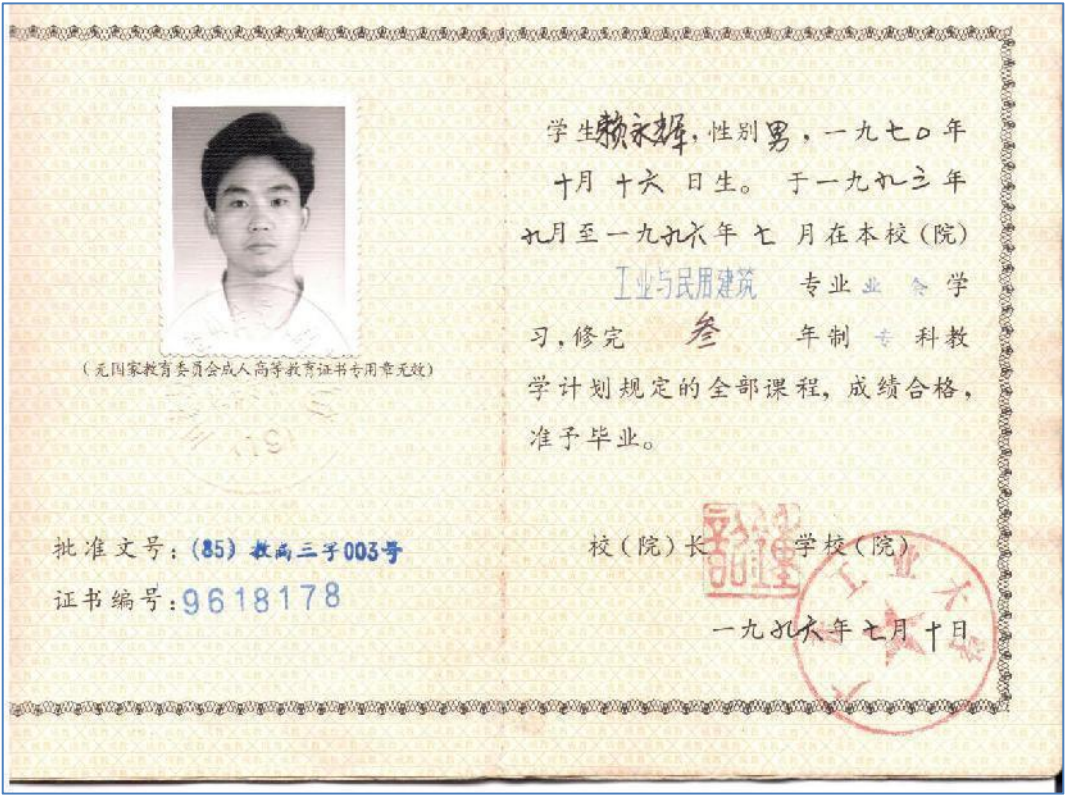 (无国家教育委员会成人高等教育证书专用章无效)
批准文号：(85) 教高三字003号
证书编号：9618178
学生赖永辉，性别男，一九七〇年
十月十六日生。于一九九三年
九月至一九九六年七月在本校(院)
工业与民用建筑 专业业余学
习，修完 叁 年制 专 科教
学计划规定的全部课程，成绩合格，
准予毕业。
校(院)长 学校(院)
一九九六年七月十日
工业大学